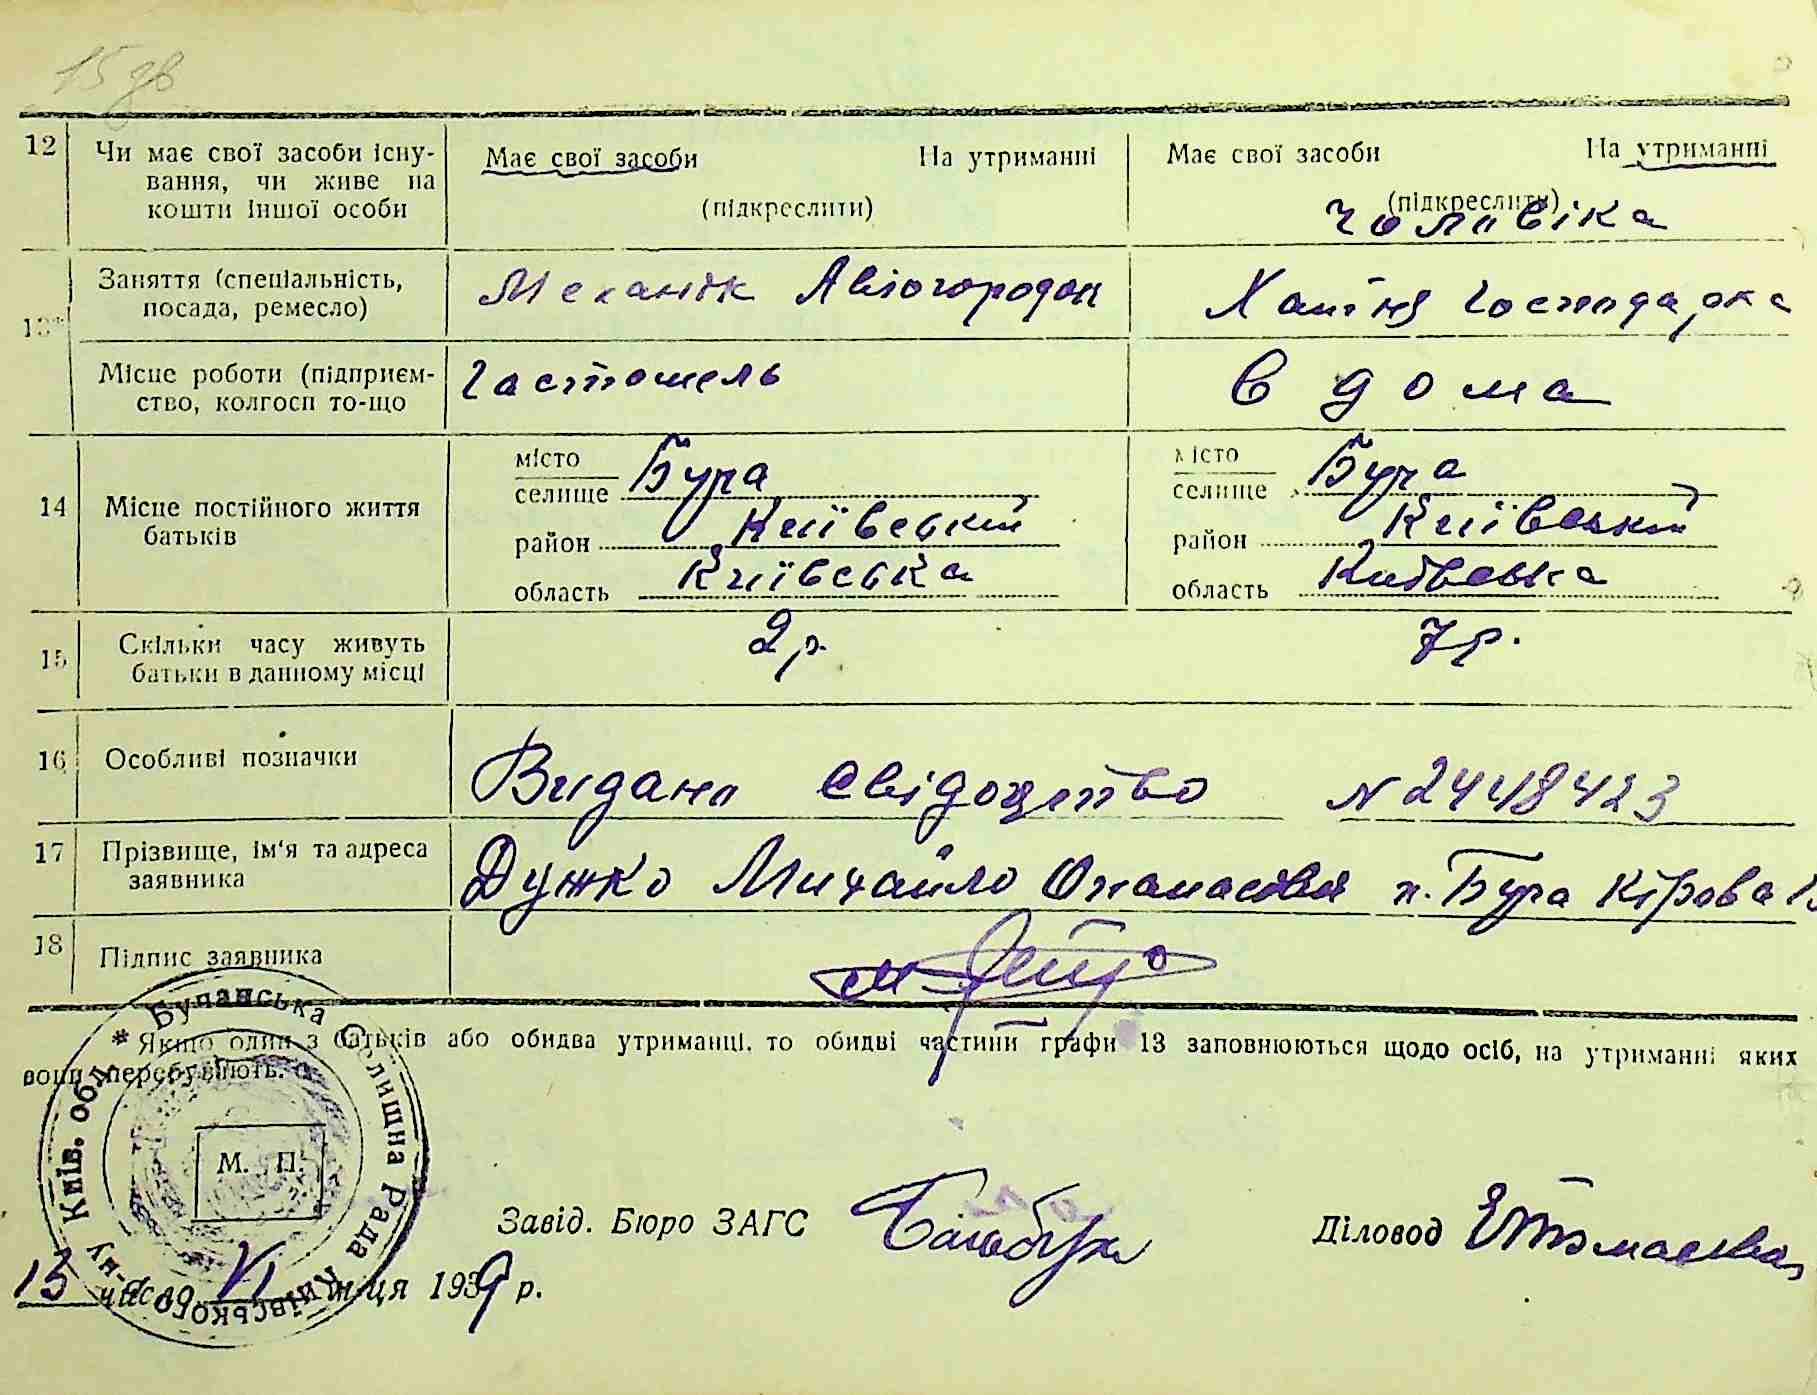 15 дв
12 Чи має свої засоби існу- Має свої засоби На утриманні Має свої засоби На утриманні
вання, чи живе на
кошти іншої особи (підкреслити) (підкреслити)
чоловіка
13* Заняття (спеціальність, Механік Авіогородок Хатня господарка
посада, ремесло)
Місце роботи (підприєм- Гостомель в дома
ство, колгосп то-що
14 Місце постійного життя місто Буча місто Буча
батьків селище селище
район Київський район Київський
область Київська область Київська
15 Скільки часу живуть 2 р. 7 р.
батьки в данному місці
16 Особливі позначки Видано свідоцтво N 2448423
17 Прізвище, ім'я та адреса Дужко Михайло Опанасович п. Буча Кірова
заявника
18 Підпис заявника
* Якщо один з батьків або обидва утриманці, то обидві частини графи 13 заповнюються щодо осіб, на утриманні яких
вони перебувають.
Бучанська Селищна Рада Київського р-ну Київ. обл.
М. П.
Завід. Бюро ЗАГС Діловод
13 число VI м-ця 1939 р.